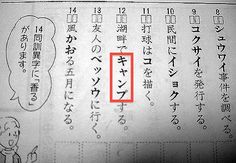 8 シュウワイ事件を調べる。
9 コクサイを発行する。
10 民間にイショクする。
11 打球はコを描く。
12 湖畔でキャンプする。
13 友人のベッソウに行く。
14 風かおる五月になる。
14 同訓異字に「香る」
があります。